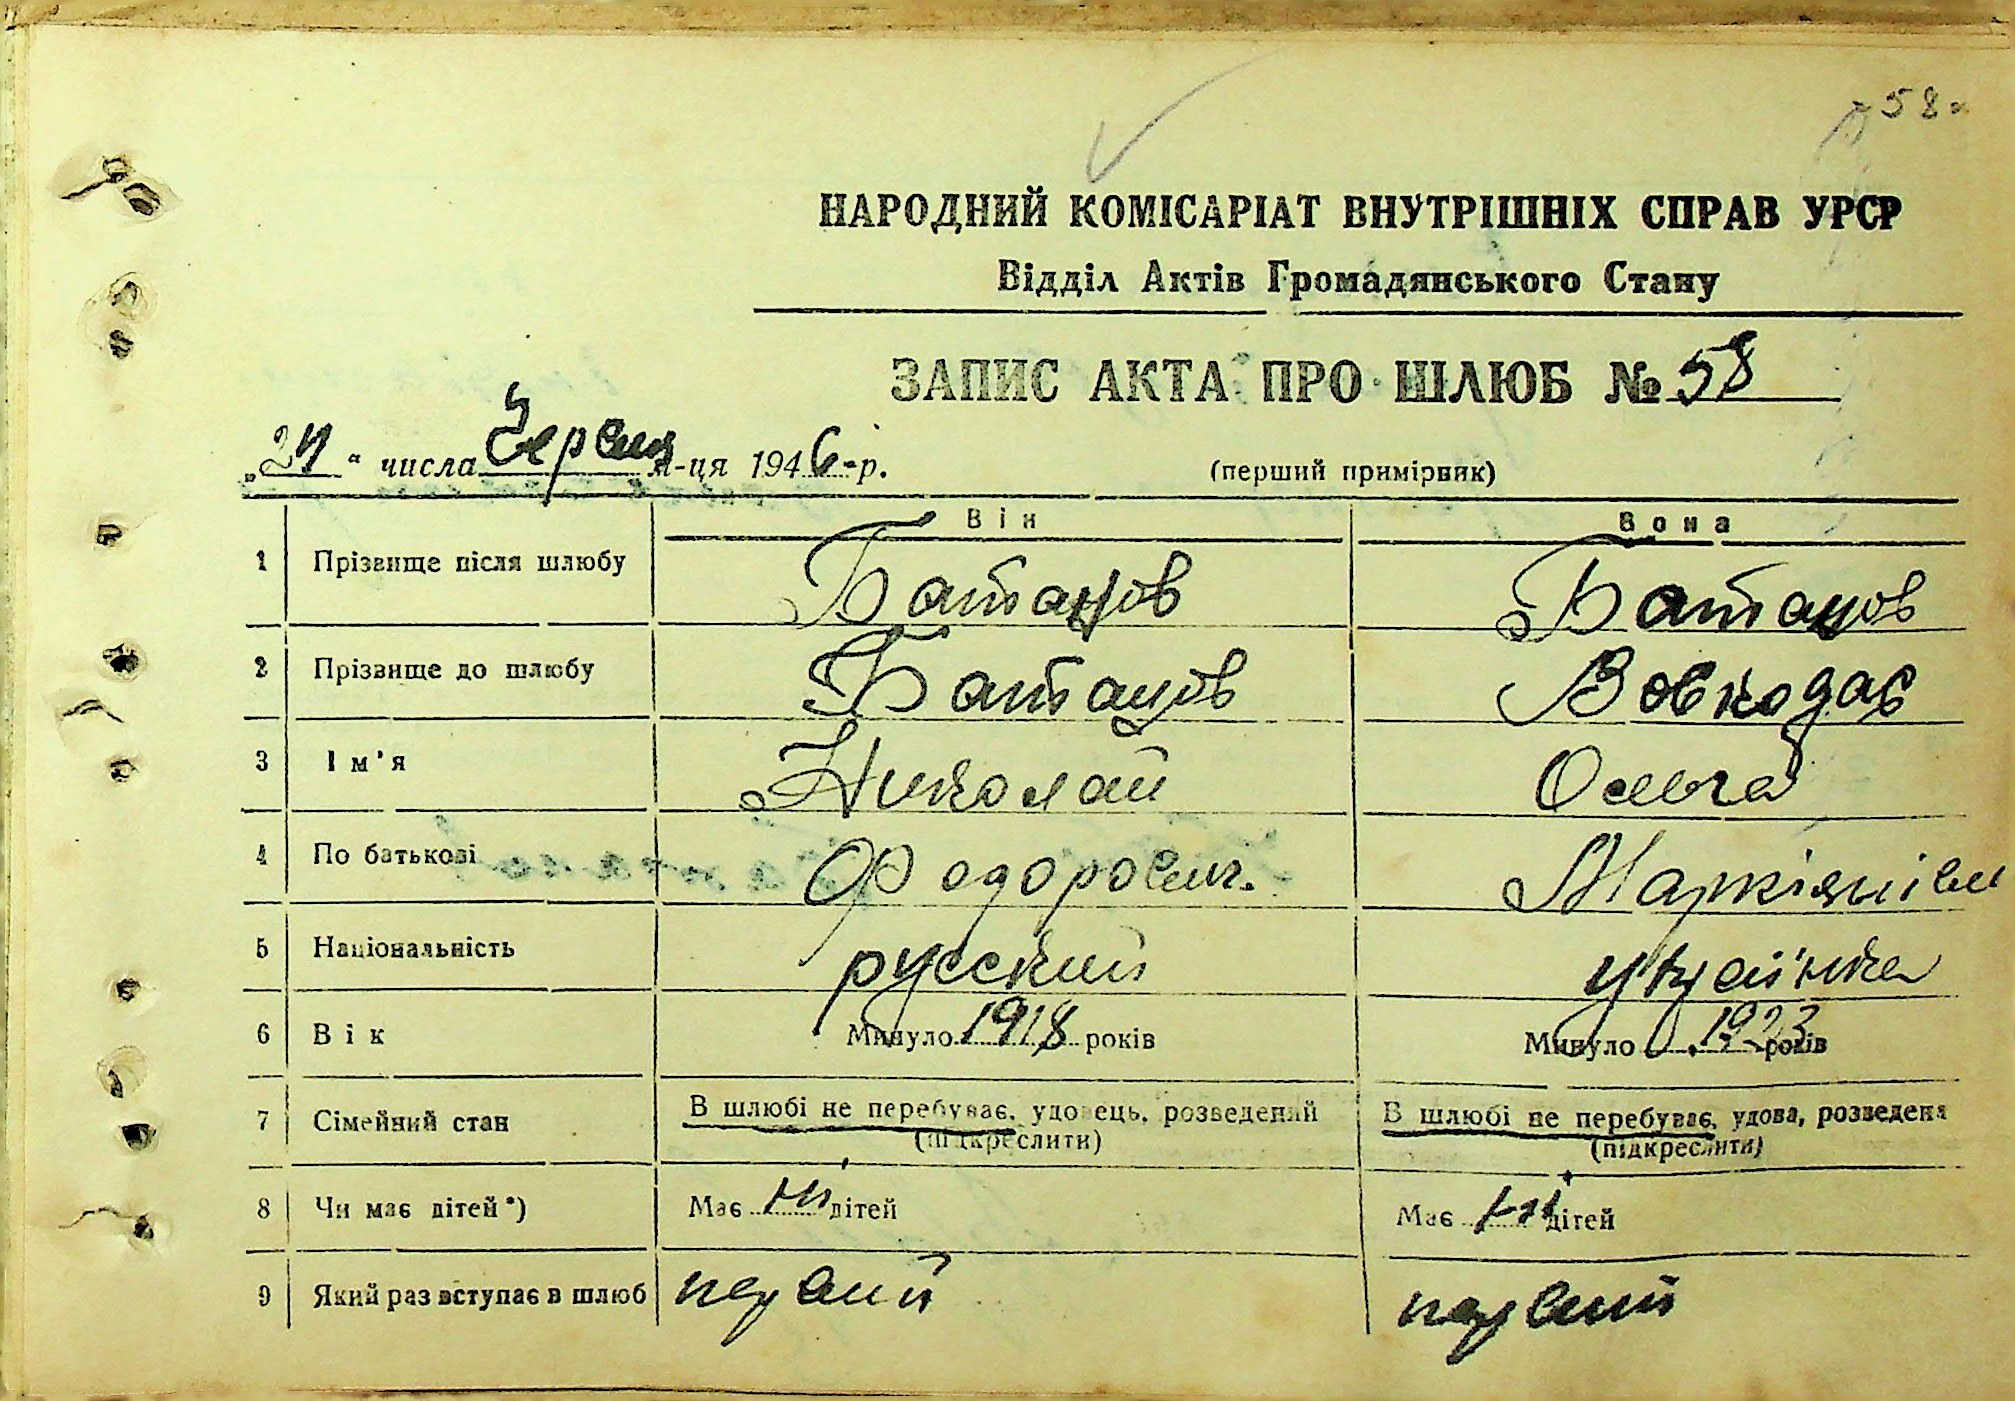 58
НАРОДНИЙ КОМІСАРІАТ ВНУТРІШНІХ СПРАВ УРСР
Відділ Актів Громадянського Стану
ЗАПИС АКТА ПРО ШЛЮБ № 58
„21“ числа Червня м-ця 1946-р.
(перший примірник)
Він Вона
1 Прізвище після шлюбу Батанов Батанов
2 Прізвище до шлюбу Батанов Вовкодав
3 Ім'я Николай Ольга
4 По батькові Федорович. Маркіянівн
5 Національність русский украінка
6 Вік Минуло 1918 років Минуло 1923 років
7 Сімейний стан В шлюбі не перебуває, удовець, розведений В шлюбі не перебуває, удова, розведена
(підкреслити) (підкреслити)
8 Чи має дітей*) Має ні дітей Має ні дітей
9 Який раз вступає в шлюб первий первий